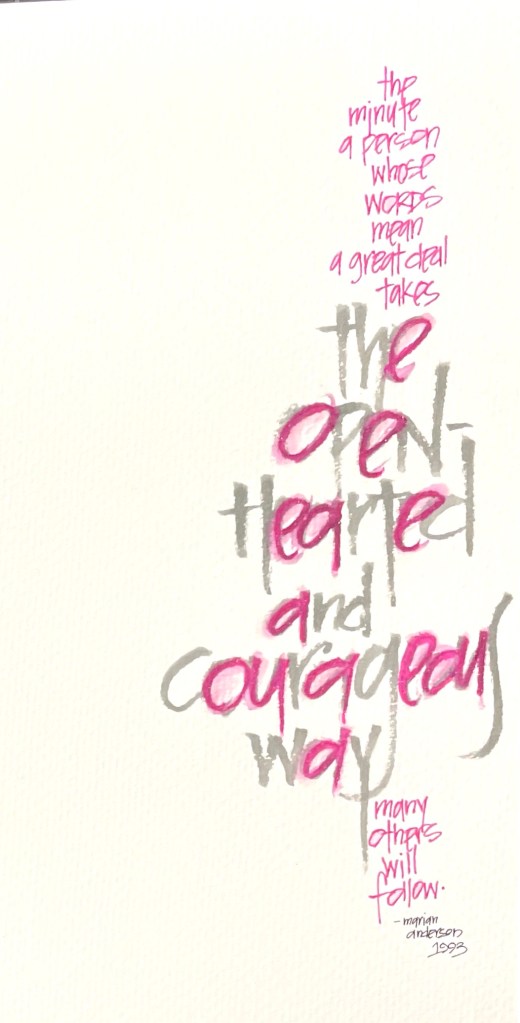 the
minute
a person
whose
WORDS
mean
a great deal
takes
the
open-
Hearted
and
courageous
way
many
others
will
follow.
-marian
anderson
1993